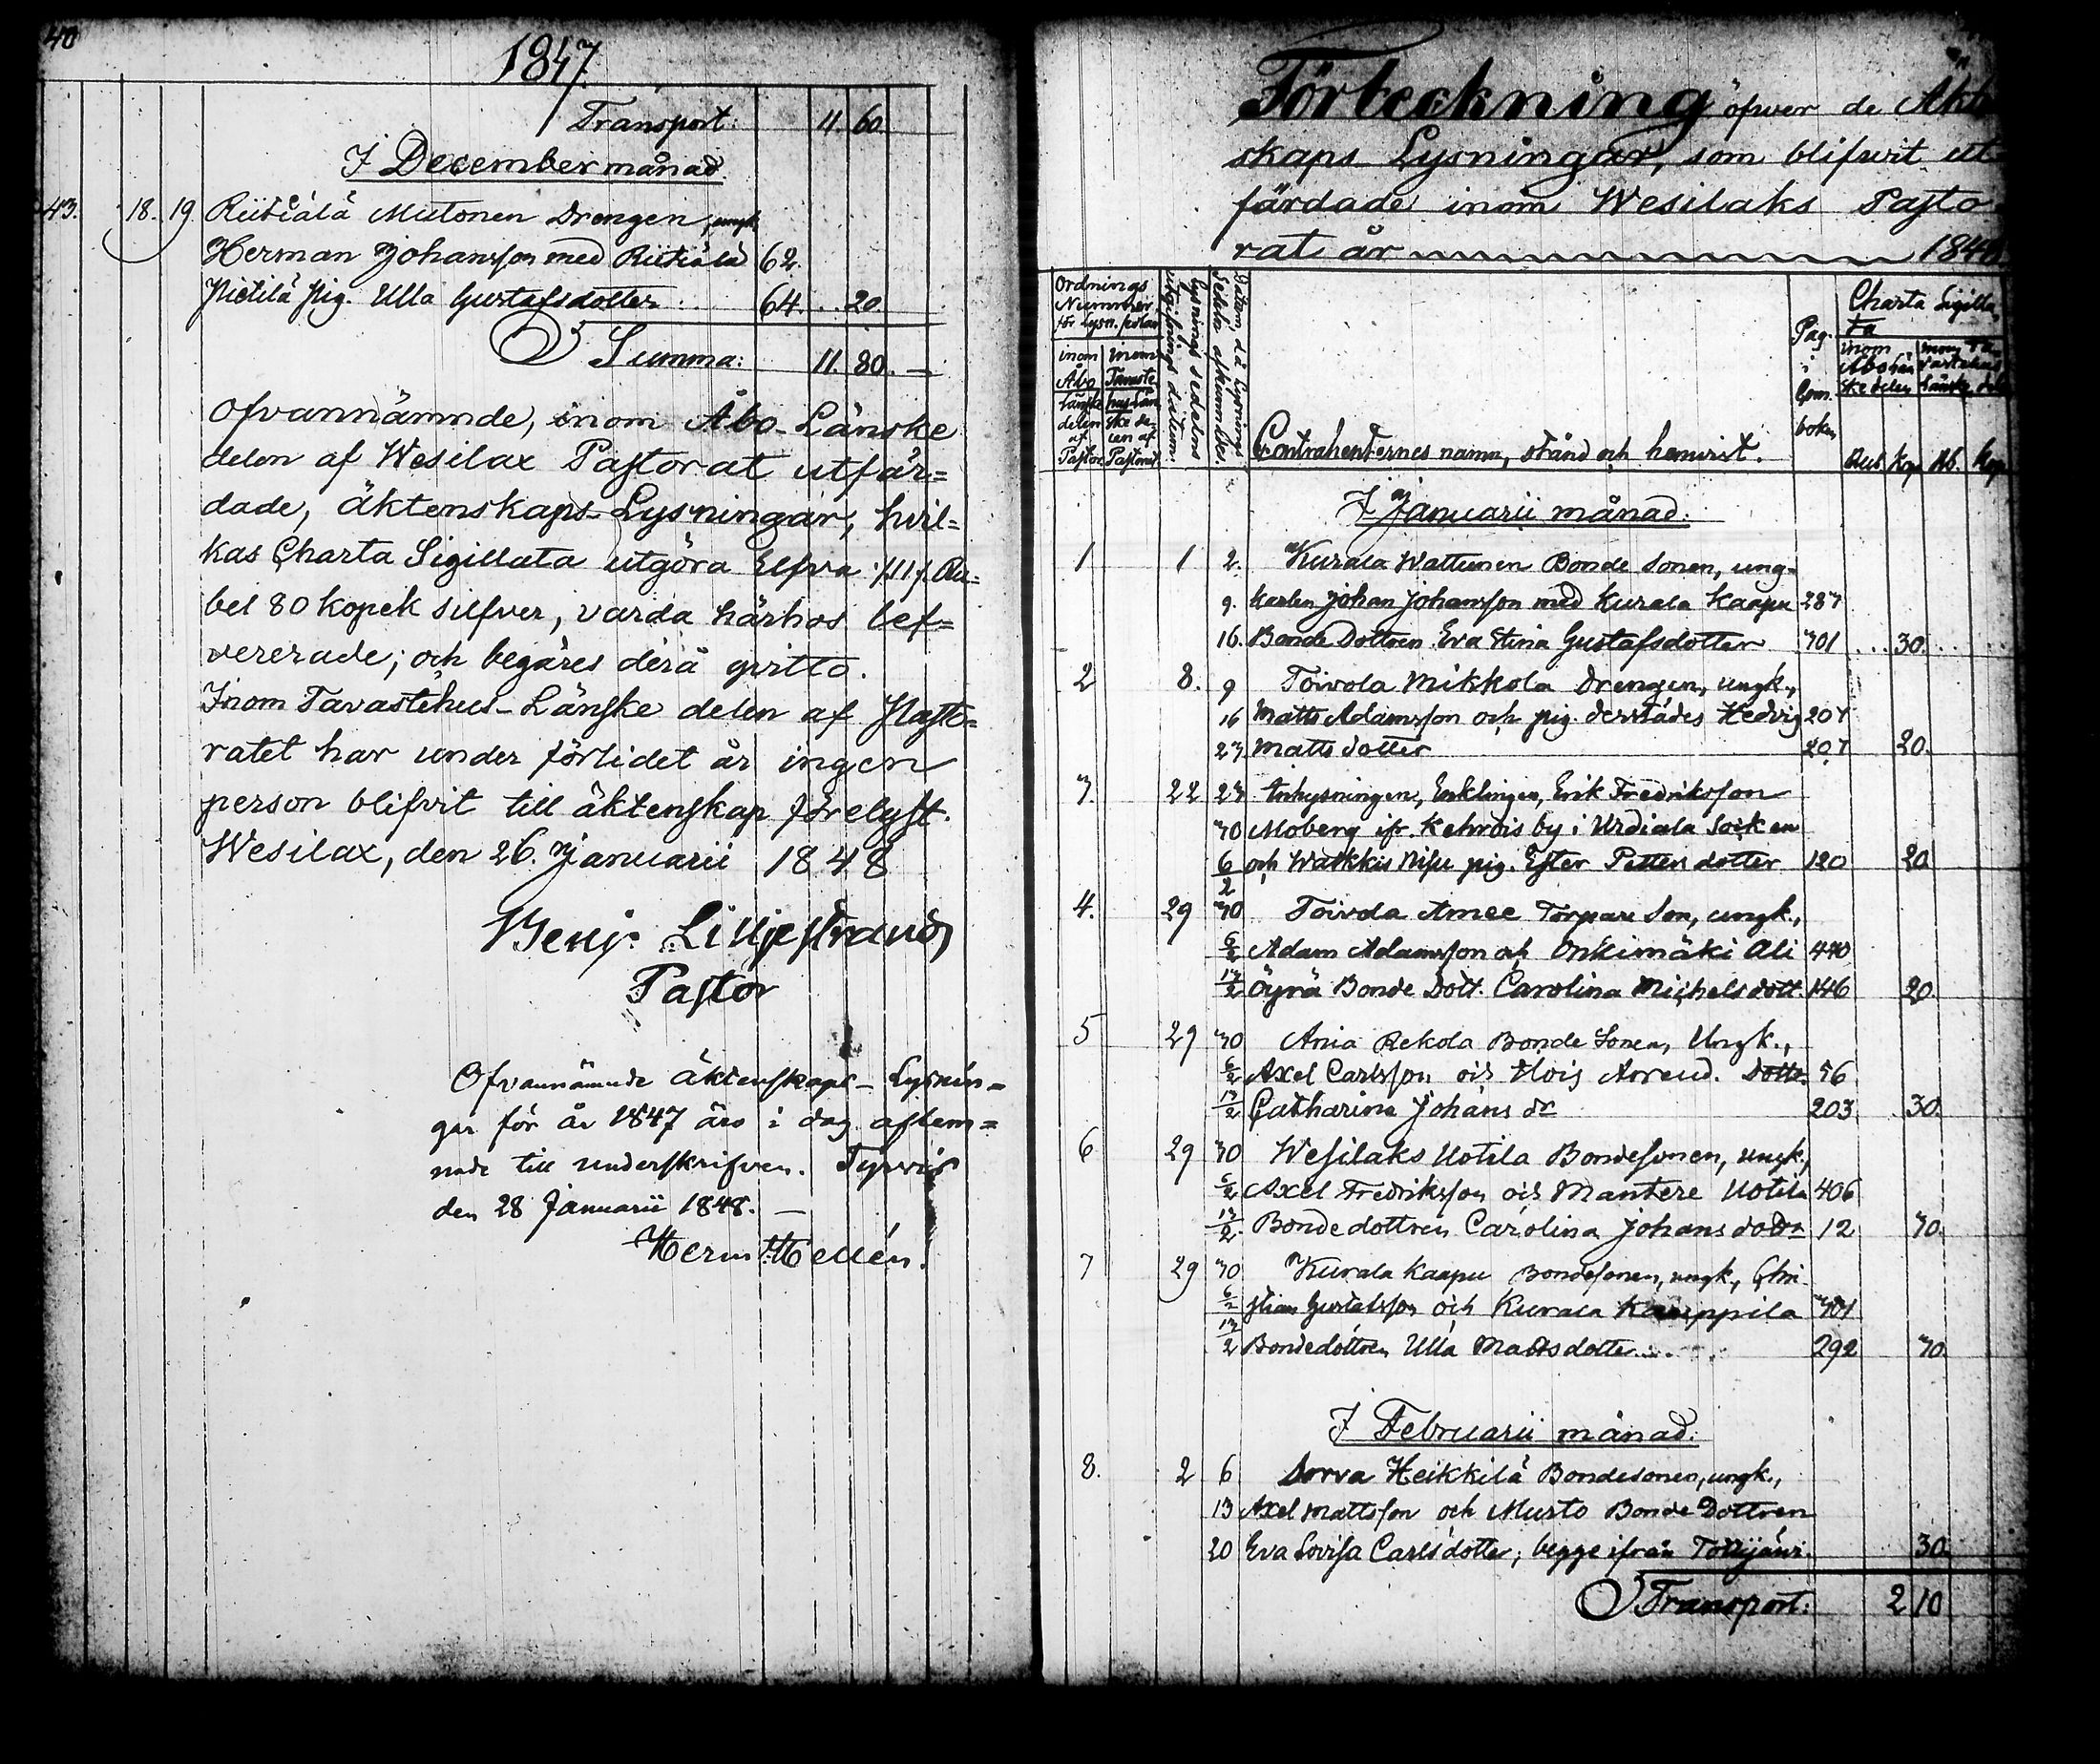 40
1847
Transport: 11. 60.
I December månad.
43. 18. 19. Riitiälä Mutonen Drengen, ungk.
Herman Johansson med Riitiälä 62.
Pietilä pig. Ulla Gustafsdotter 64. . . 20
Summa: 11. 80. —
Ofvannämnde, inom Åbo-Länske
delen af Wesilax Pastorat utfär=
dade, äktenskaps-Lysningar, hvil=
kas Charta Sigillata utgöra Elfva /11/ Ru=
bel 80 kopek silfver, varda härhos lef=
vererade; och begäres derå qvitto.
Inom Tavastehus-Länske delen af Pasto=
ratet har under förlidet år ingen
person blifvit till äktenskap förelyst.
Wesilax, den 26. Januarii 1848
Benj. Liljestrand
Pastor
Ofvannämnde äktenskaps-Lysnin=
gar för år 1847 äro i dag aflem=
nade till underskrifven. Tyrvis
den 28 Januarii 1848. —
Herm. Hellén.
Förteckning öfver de Äkten
skaps Lysningar, som blifvit ut
färdade inom Wesilaks Pasto
rat år 1848
Ordnings
Nummer
för Lysn. sedlar
inom
Åbo
Länske
delen
af
Pastor.
inom
Tavaste
hus Län
ske de-
len af
Pastorat.
Lysnings sedelns
utgifnings datum.
Datum, då Lysnings
Sedeln afkunnades.
Contrahenternes namn, stånd och hemvist.
Pag.
i
Com.
boken
Charta Sigilla
ta
inom
Åbo län
ske delen
inom Ta-
vastehus
länske del
Rub. Kop. Rb. Kop
I Januarii månad.
1 1 2. Kurala Wattunen Bonde Sonen, ung-
9. karlen Johan Johansson med Kurala Kaapu 287
16. Bonde Dottren Eva Stina Gustafsdotter 301 . . . 30.
2 8. 9 Toivola Mikkola Drengen, ungk.,
16 Matts Adamsson och pig. derstädes Hedvig 207
23 Mattsdotter 207 20.
3. 22 23 Inhysningen, Enklingen, Erik Fredriksson
30 Moberg ifr. Kehrois by i Urdiala Socken
6/2 och Warkkis Nisu pig. Ester Pettersdotter 120 20
4. 29 30 Toivola Amee Torpare Son, ungk.,
6/2 Adam Adamsson och Onkimäki Ali 440
13/2 Öyrä Bonde Dott. Carolina Michelsdott. 146 20.
5 29 30 Ania Rekola Bonde Sonen, Ungk.,
6/2 Axel Carlsson och Hois Arrend. Dotte. 56
13/2 Catharina Johans dr 203 30.
6 29 30 Wesilaks Uotila Bondesonen, ungk.,
6/2 Axel Fredriksson och Mantere Uotila 406
13/2 Bondedottren Carolina Johansdodr 12 30.
7 29 30 Kurala Kaapu Bondesonen, ungk., Chri-
6/2 stian Gustafsson och Kurala Kauppila 301
13/2 Bondedottren Ulla Mattsdotte... 292 30.
I Februarii månad.
8. 2 6 Sorva Heikkilä Bondesonen, ungk.,
13 Axel Mattsson och Musto Bonde Dottren
20 Eva Lovisa Carlsdotter; begge ifrån Tottijärvi. 30.
Transport: 2 10